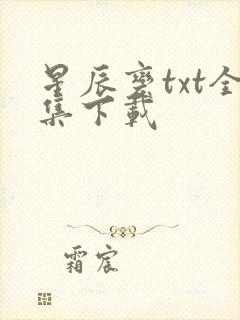 星辰变txt全
集下载
霜宸